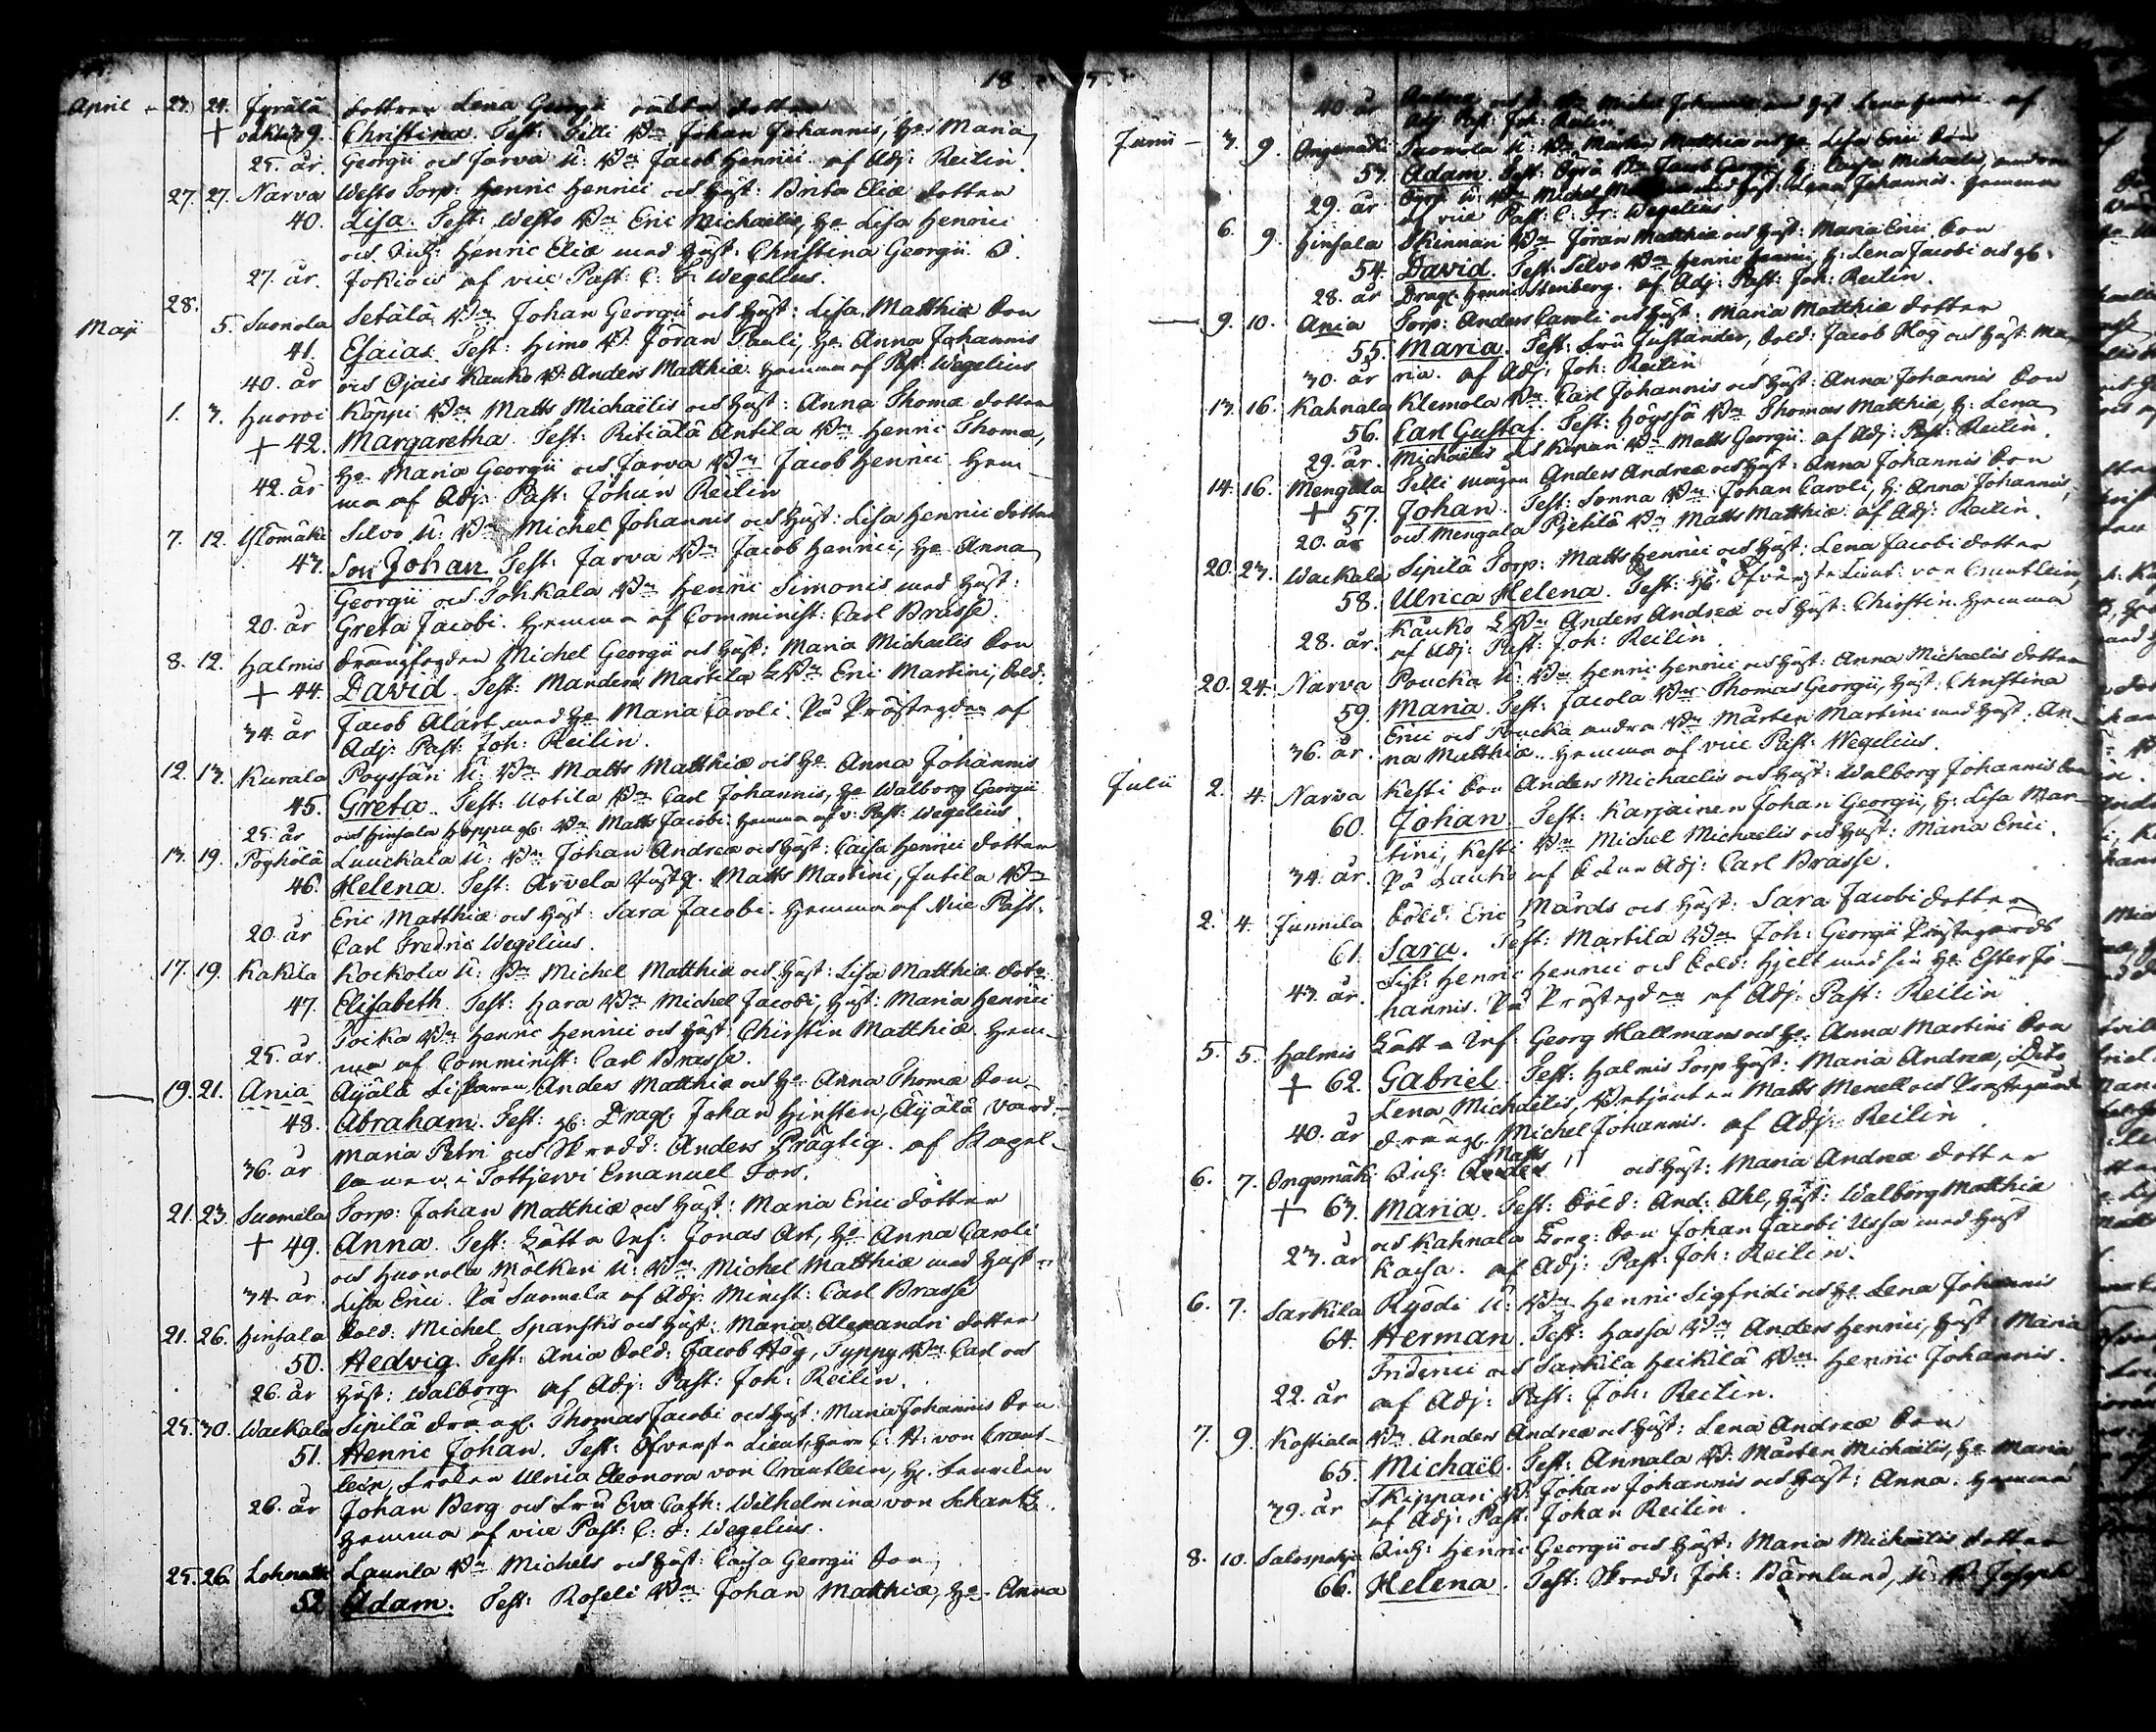 18
April 23. 24. Jyrälä dottren Lena Georgii oäkta dotter
+ oäkta 39. Christina. Test: Tilli Bn Johan Johannis, He Maria
25. år. Georgii och Jarva U: Bn Jacob Henrici af Adj: Reilin.
27. 27. Narva Westo Torp: Henric Henrici och Hust: Brita Eliæ dotter
40. Lisa. Test: Westo Bn Eric Michaelis, He Lisa Henrici
och Henric Eliæ med Hust: Christina Georgii
27. år. Jokiois af vice Past: C: F: Wegelius.
28. Setälä Bn Johan Georgii och Hust: Lisa Matthiæ Son
Maji 5. Suonola
41. Esaias. Test: Himo B. Jöran Pauli, He Anna Johannis
40. år och Ojais Kauko B. Anders Matthiæ. Hemma af Past: Wegelius
1. 3. Huovoi Köppi Bn Matts Michaëlis och Hust: Anna Thomæ dotter
+ 42. Margaretha. Test: Ritiälä Antila Bn Henric Thomæ,
42. år He Maria Georgii och Jarva Bn Jacob Henrici. Hem-
ma af Adj: Past: Johan Reilin
7. 12. Ylömäki Silvo U: Bn Michel Johannis och Hust: Lisa Henrici dotter
43. Son Johan Test: Jarva Bn Jacob Henrici, He Anna
Georgii och Tohkala Bn Henric Simonis med Hust:
20. år Greta Jacobi. Hemma af Comminist: Carl Brasse.
8. 12. Halmis Drängfogden Michel Georgii och Hust: Maria Michaelis Son
+ 44. David. Test: Mandera Martila Bn Eric Martini, Sold:
34. år Jacob Alärt med He Maria Caroli. På Prästegden af
Adj: Past: Joh: Reilin.
12. 13. Kurala Poyssän U: Bn Matts Matthiæ och He Anna Johannis
45. Greta. Test: Uotila Bn Carl Johannis, He Walborg Georgii
25. år och Hinsala Hoppu gb: Bn Matts Jacobi. Hemma af v: Past: Wegelius.
13. 19. Pöyhölä Luuckala U: Bn Johan Andreæ och Hust: Caisa Henrici dotter
46. Helena. Test: Arvela Matts Martini, Jutila Bn
20. år Eric Matthiæ och Hust: Sara Jacobi. Hemma af Vice Past:
Carl Fredric Wegelius.
17. 19. Kakila Kockola U: Bn Michel Matthiæ och Hust: Lisa Matthiæ dotr
47. Elisabeth. Test: Hara Bn Michel Jacobi, Hust: Maria Henrici
25. år. Poika Bn Henric Henrici och Hust: Chirstin Matthiæ. Hem-
ma af Comminist: Carl Brasse.
19. 21. Ania Äijälä Anders Matthiæ och He Anna Thomæ Son
48. Abraham. Test: gb: Drag: Johan Hinsten, Äijälä Värd-
36. år Maria Petri och Skredd: Anders Prägtig. af Kapel-
lanen i Tottjervi Emanuel Fors.
21. 23. Suomela Torp: Johan Matthiæ och Hust: Maria Erici dotter
+ 49. Anna. Test: Lätt Inf: Jonas Art, He Anna Caroli
och Huonola Mölkeri U: Bn Michel Matthiæ med Hustn
34 år Lisa Erici. På Suomela af Adj: Minist: Carl Brasse
21. 26. Hinsala Sold: Michel Spansks och Hust: Maria Alexandri dotter
50. Hedvig. Test: Ania Sold: Jacob Hög, Typpy Bn Carl och
26. år Hust: Walborg. af Adj: Past: Joh: Reilin.
25. 30. Wackala Sipilä Dräng. Thomas Jacobi och Hust: Maria Johannis Son
51. Henric Johan. Test: Öfverste Lieut: Herr C: H: von Craut-
lein, Fröken Ulrica Eleonora von Crautlein, H: Fenriken
26. år Johan Berg och Fru Eva Cath: Wilhelmina von Schantz.
Hemma af vice Past: C: F: Wegelius.
25. 26. Lohnatti Launla Bn Michels och Hust: Caisa Georgii Son
52. Adam. Test: Roseli Bn Johan Matthiæ, He Anna
40 år Michel Johannis med Hust. Lena Henrici af
Adj: Past: Joh: Reilin
Junii 3. 9. Ongemäki Suonola U: Bn Mårten Matthiæ och He Lisa Erici Son
53. Adam. Test: Ögrä Bn Jacob Georgii, H: Caisa Michaelis, med
29. år Ögrä U: Bn Michel med Hust: Lena Johannis. Hemma
af vice Past: C: Fr: Wegelius
6. 9. Hinsala Skinnari Bn Jöran Matthiæ och Hust: Maria Erici Son
54. David. Test: Silvo Bn Henric Henrici, H: Lena Jacobi och gb:
28. år Drag: Henric Stenberg. af Adj: Past: Joh: Reilin.
9. 10. Ania Torp: Anders Caroli och Hust: Maria Matthiæ dotter
55. Maria. Test: Fru Justander, Sold: Jacob Hög och Hust: Ma-
30. år ria. af Adj: Joh: Reilin
13. 16. Kahnala Klemola Bn Carl Johannis och Hust: Anna Johannis Son
56. Carl Gustaf. Test: Höyssä Bn Thomas Matthiæ, H: Lena
29. år. Michaëlis och Knaari Bn Matts Georgii. af Adj: Past: Reilin.
14. 16. Mengala Tilli mågen Anders Andreæ och Hust: Anna Johannis Son
+ 57. Johan. Test: Sonna Bn Johan Caroli, H: Anna Johannis,
20. år och Mengala Pietilä Bn Matts Matthiæ. af Adj: Reilin.
20. 23. Wackala Sipilä Torp: Matts Henrici och Hust: Lena Jacobi dotter
58. Ulrica Helena. Test: H: Öfverste Lieut: von Crautlein,
28. år. Kauko Bn Anders Andreæ och Hust: Chirstin. Hemma
af Adj: Past: Joh: Reilin
20. 24. Narva Poucka U: Bn Henric Henrici och Hust: Anna Michaelis dotter
59. Maria. Test: Jacola Bn Thomas Georgii, Hust: Christina
Erici och Poucka andra Bn Mårten Martini med Hust: An-
36. år. na Matthiæ. Hemma af vice Past: Wegelius.
Julii 2. 4. Narva Kesti Son Anders Michaelis och Hust: Walborg Johannis Son
60. Johan. Test: Karjainen Johan Georgii, H: Lisa Mar-
tini, Kesti Bn Michel Michaelis och Hust: Maria Erici.
34. år. På Lauko af Adj: Carl Brasse.
2. 4. Junnila Sold: Eric Mårds och Hust: Sara Jacobi dotter
61. Sara. Test: Martila Bn Joh: Georgii Prästegårds
Henric Henrici och Sold: Hjelt med sin He Ester Jo-
43. år. hannis. På Prästegden af Adj: Past: Reilin
5. 5. Halmis Lätt Inf: Georg Hallmans och He Anna Martini Son
+ 62. Gabriel. Test: Halmis Torp Hust: Maria Andreæ, Dito
Lena Michaëlis, Betjenten Matts Menell och Prästegårds
40. år Dräng. Michel Johannis. af Adj: Reilin
6. 7. Ongemäki Matts och Hust: Maria Andreæ dotter
+ 63. Maria. Test: Sold: And: Ahl, Hust: Walborg Matthiæ
och Kahnala Torp: Son Johan Jacobi Ussa med Hust
23. år Kaisa. af Adj: Past: Joh: Reilin.
6. 7. Sarkila Ryödi U: Bn Henric Sigfridi och He Lena Johannis
64. Herman. Test: Hassa Bn Anders Henrici, Hust: Maria
Friderici och Sarkila Heikilä Bn Henric Johannis.
22. år af Adj: Past: Joh: Reilin.
7. 9. Kostiala Bn Anders Andreæ och Hust: Lena Andreæ Son
65. Michaël. Test: Annala B. Mårten Michaelis, He Maria
Skippari B. Johan Johannis och Hust: Anna. Hemma
39. år af Adj: Past: Johan Reilin.
8. 10. Salospohja Henric Georgii och Hust: Maria Michaëlis dotter
66. Helena. Test: Skredd: Joh: Bärnlund, U: B. Joseph